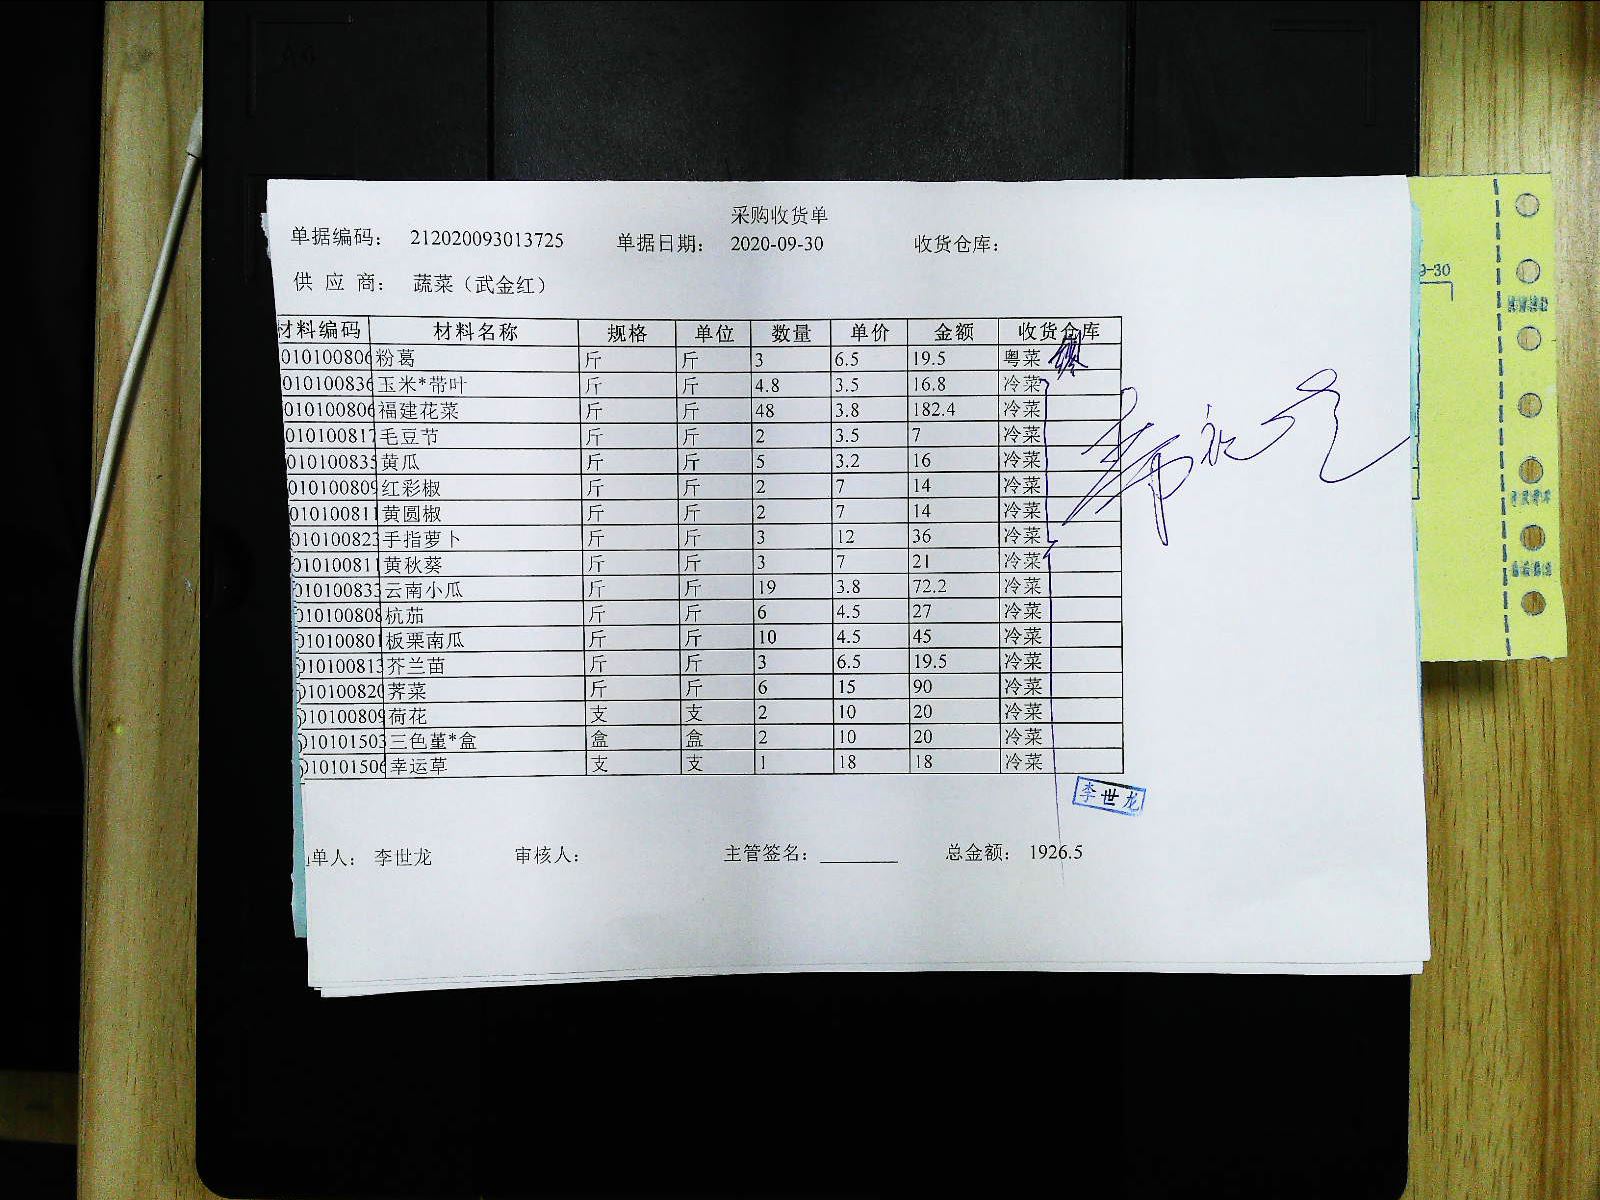 采购收货单
单据编码： 212020093013725 单据日期： 2020-09-30 收货仓库：
供 应 商： 蔬菜（武金红）
材料编码 材料名称 规格 单位 数量 单价 金额 收货仓库
010100806 粉葛 斤 斤 3 6.5 19.5 粤菜
010100836 玉米*带叶 斤 斤 4.8 3.5 16.8 冷菜
010100806 福建花菜 斤 斤 48 3.8 182.4 冷菜
010100817 毛豆节 斤 斤 2 3.5 7 冷菜
010100835 黄瓜 斤 斤 5 3.2 16 冷菜
010100809 红彩椒 斤 斤 2 7 14 冷菜
010100811 黄圆椒 斤 斤 2 7 14 冷菜
010100823 手指萝卜 斤 斤 3 12 36 冷菜
010100811 黄秋葵 斤 斤 3 7 21 冷菜
010100833 云南小瓜 斤 斤 19 3.8 72.2 冷菜
010100808 杭茄 斤 斤 6 4.5 27 冷菜
010100801 板栗南瓜 斤 斤 10 4.5 45 冷菜
010100813 芥兰苗 斤 斤 3 6.5 19.5 冷菜
010100820 荠菜 斤 斤 6 15 90 冷菜
010100809 荷花 支 支 2 10 20 冷菜
010101503 三色堇*盒 盒 盒 2 10 20 冷菜
010101506 幸运草 支 支 1 18 18 冷菜
李世龙
单人： 李世龙 审核人： 主管签名：________ 总金额： 1926.5
9-30